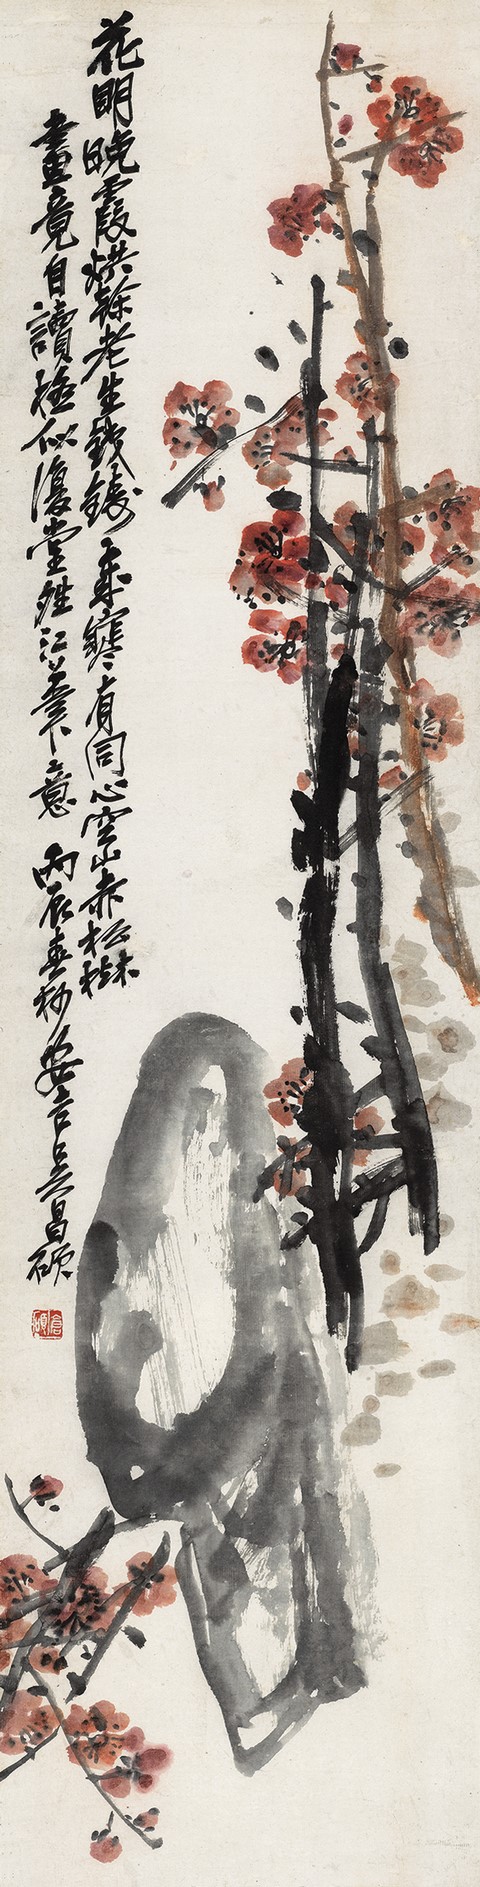 花明晚霞烘榦老生鐵鑄歲寒有同心空山赤松樹
畫竟自讀極似復堂筆下意 丙辰春杪安吉吳昌碩
倉碩